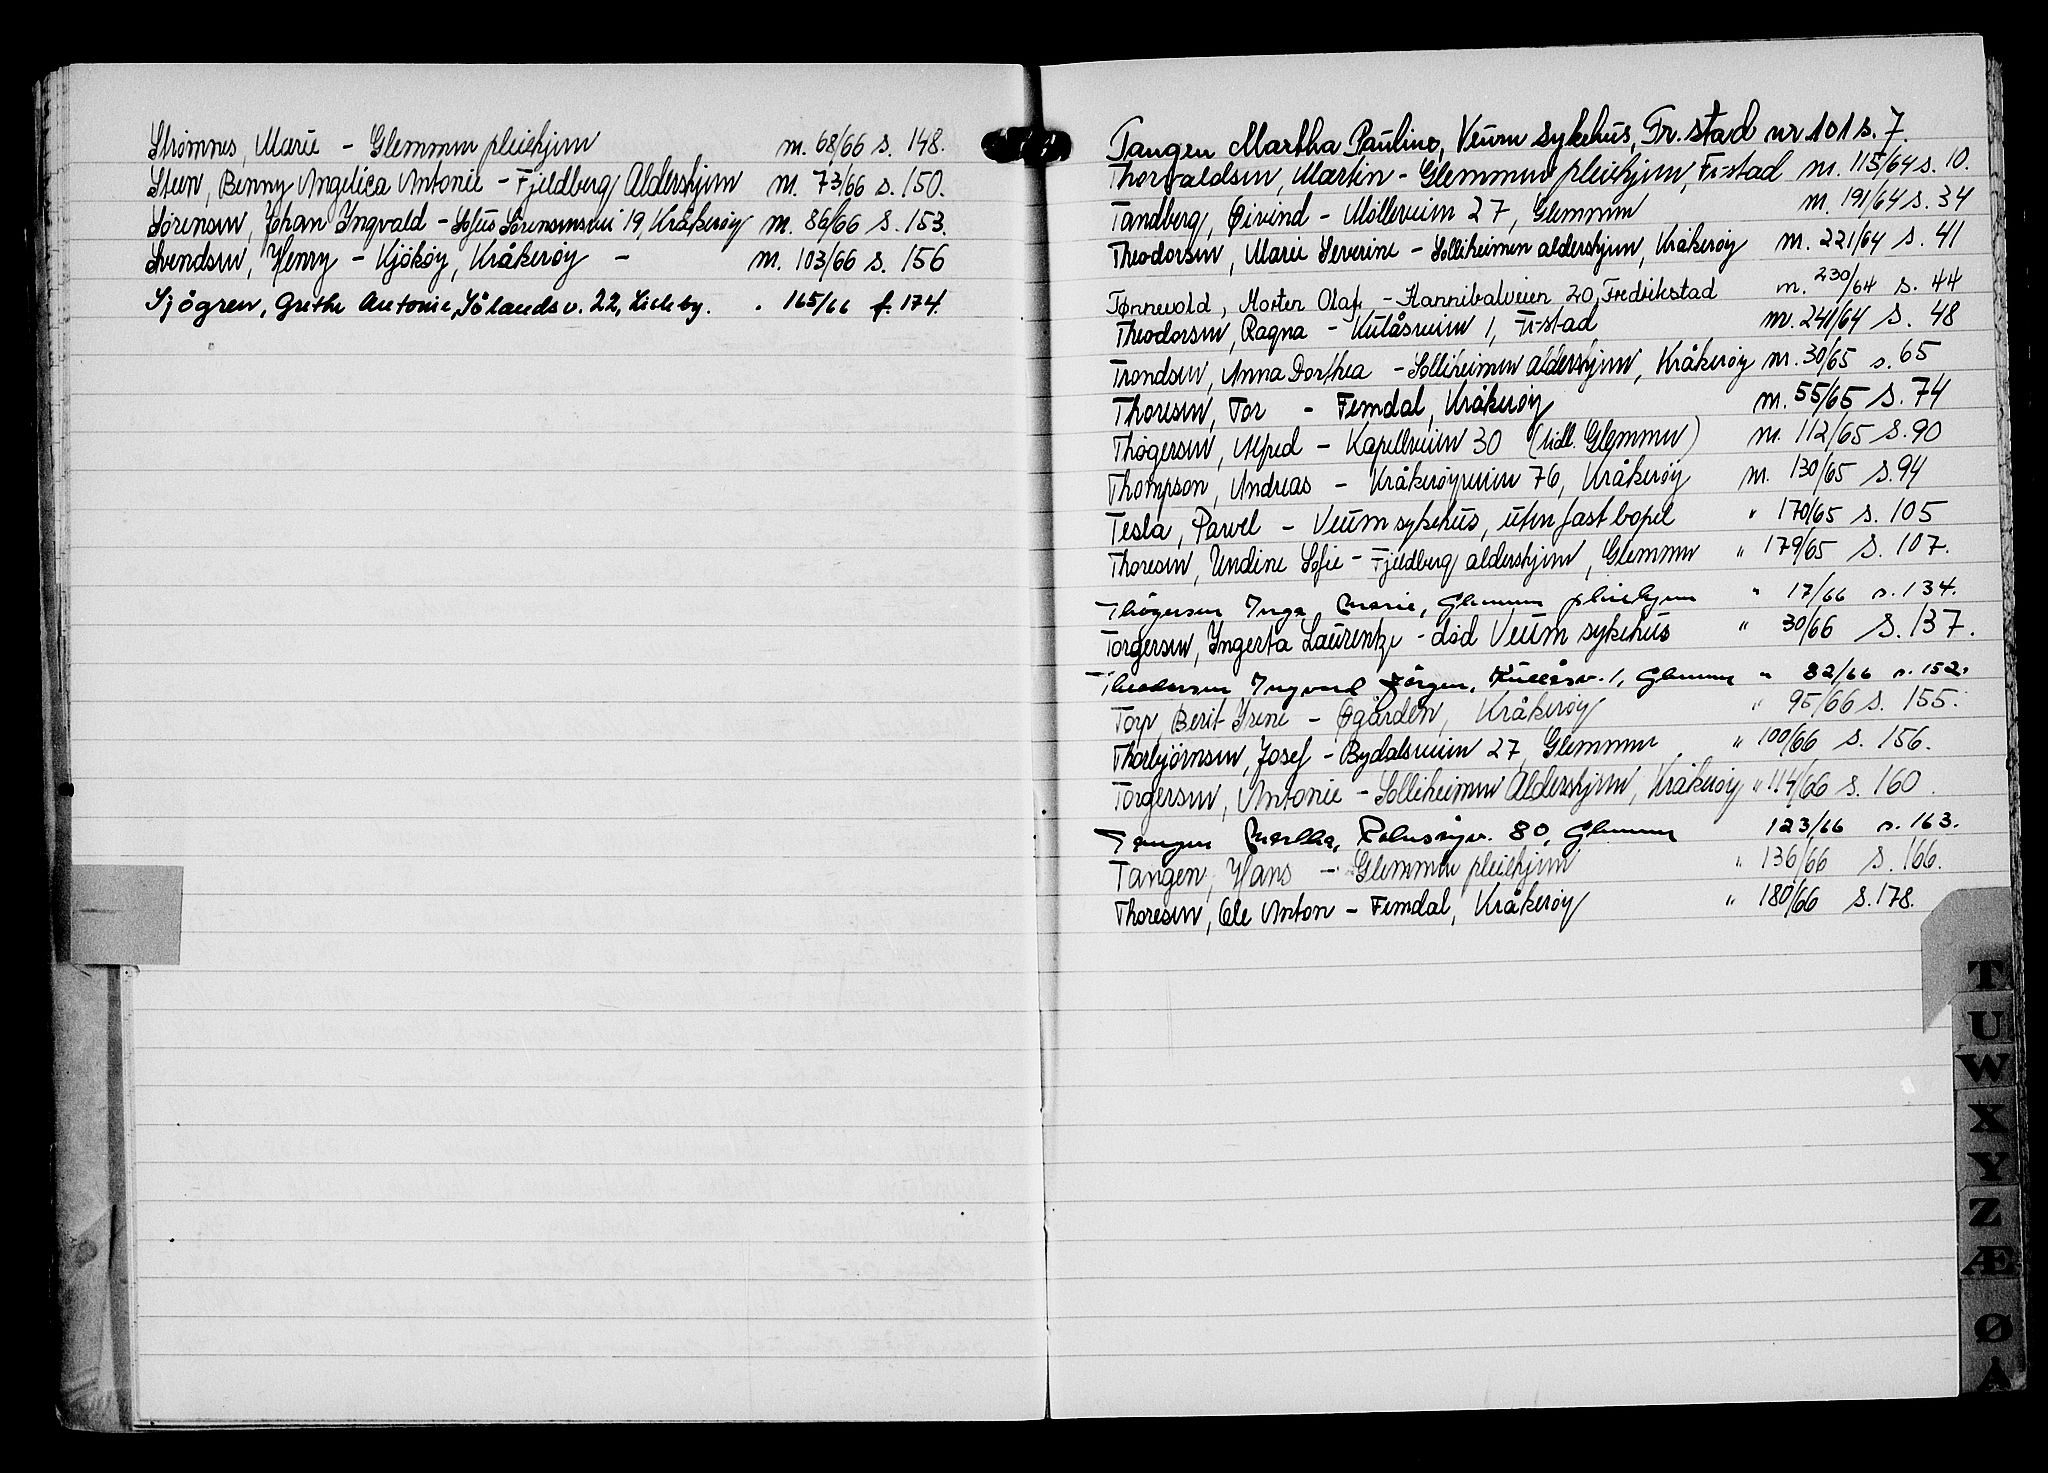 Strømnes, Marie - Glemmen pleiehjem nr. 68/66 s. 148.
Steen, Benny Angelica Antonie - Fjeldberg Aldershjem nr. 73/66 s. 150.
Sørensen, Johan Yngvald - Sofus Sørensensvei 19, Kråkerøy nr. 86/66 s. 153.
Svendsen, Henry - Kjøkøy, Kråkerøy - nr. 103/66 s. 156
Sjögren, Grethe Antonie, Sölandsv. 22, Lisleby. " 165/66 s. 174.
Tangen Martha Pauline, Veum sykehus, Fr.stad nr 101 s. 7.
Thorvaldsen, Martin - Glemmen pleiehjem, Fr-stad nr. 115/64 s. 10.
Tandberg, Øivind - Mølleveien 27, Glemmen nr. 191/64 s. 34
Theodorsen, Marie Severine - Solliheimen aldershjem, Kråkerøy nr. 221/64 s. 41
Tønnevold, Morten Olaf - Hannibalveien 20, Fredrikstad nr. 230/64 s. 44
Theodorsen, Ragna - Kulåsveien 1, Fr-stad nr. 241/64 s. 48
Trondsen, Anna Dorthea - Solliheimen aldershjem, Kråkerøy nr. 30/65 s. 65
Thoresen, Tor - Femdal, Kråkerøy nr. 55/65 s. 74
Thøgersen, Alfred - Kapellveien 30 (tidl. Glemmen) nr. 112/65 s. 90
Thompson, Andreas - Kråkerøyveien 76, Kråkerøy nr. 130/65 s. 94
Tesla, Pavel - Veum sykehus, uten fast bopel " 170/65 s. 105
Thoresen, Undine Sofie - Fjeldberg aldershjem, Glemmen " 179/65 s. 107.
Thøgersen Inga Marie, Glemmen pleiehjem " 17/66 s. 134.
Torgersen, Yngerta Laurentze - død Veum sykehus " 30/66 s. 137.
Theodorsen Ingvard Jörgen, Kulåsv. 1, Glemmen " 82/66 s. 152.
Torp, Berit Irene - Øgården, Kråkerøy " 95/66 s. 155.
Thorbjørnsen, Josef - Bydalsveien 27, Glemmen " 100/66 s. 156.
Torgersen, Antonie - Solliheimen Aldershjem, Kråkerøy " 114/66 s. 160.
Tangen Martha, 80, Glemmen 123/66 s. 163.
Tangen, Hans - Glemmen pleiehjem " 136/66 s. 166.
Thoresen, Ole Anton - Femdal, Kråkerøy " 180/66 s. 178.
T
U
W
X
Y
Z
Æ
Ø
Å